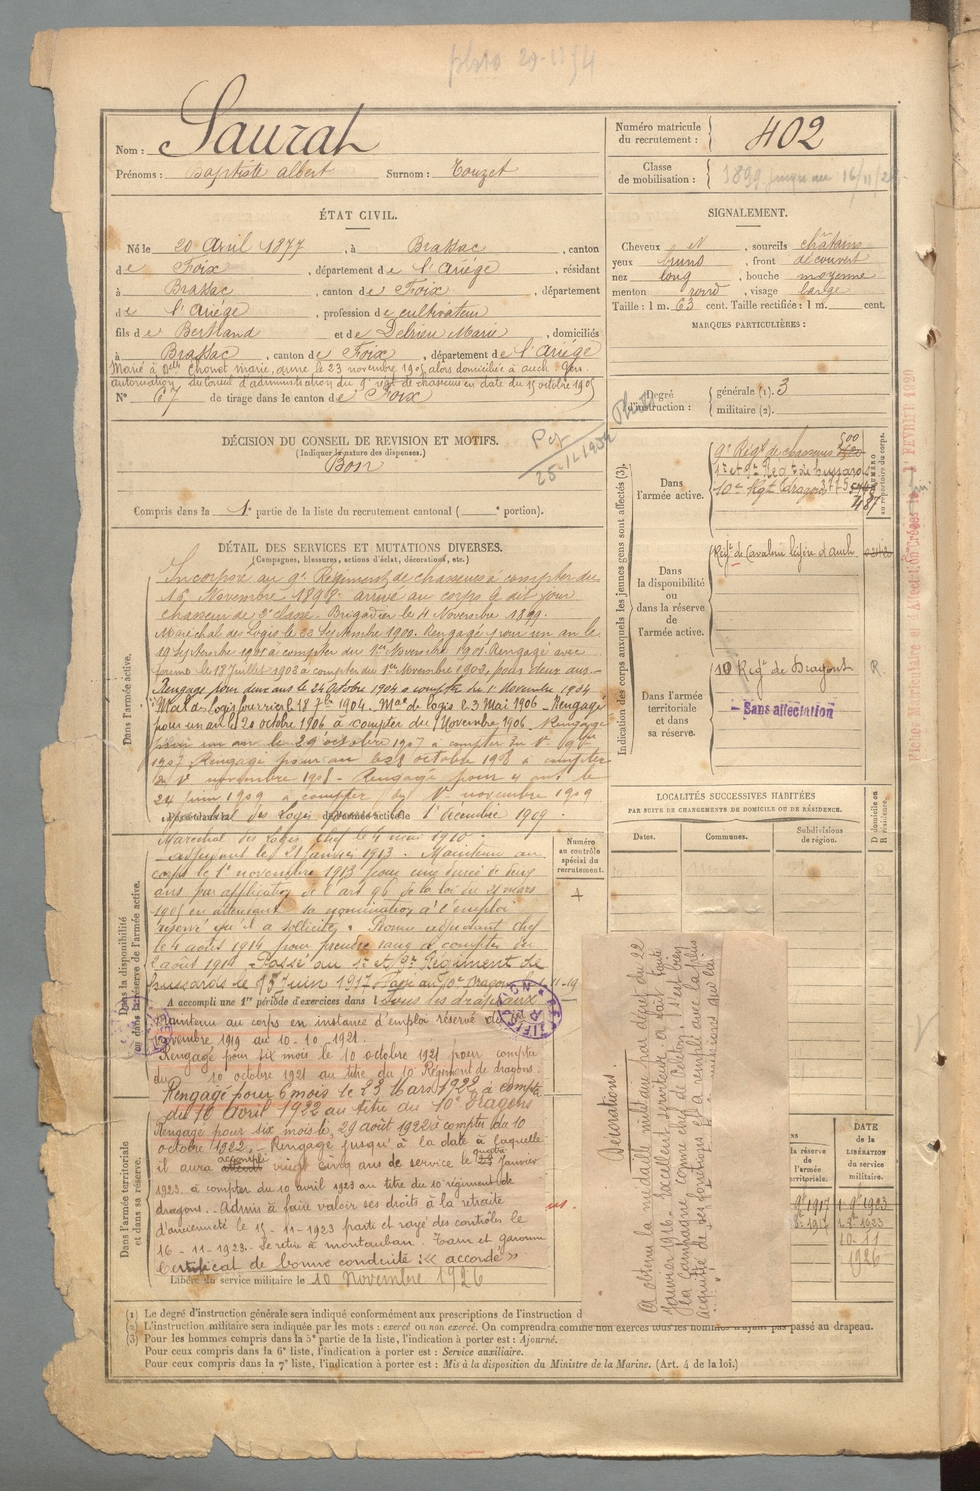 Nom : Saurat
Prénoms : Baptiste albert Surnom : Touzet
Numéro matricule du recrutement : 402
Classe de mobilisation : 1899
ÉTAT CIVIL.
Né le 20 Avril 1877, à Brassac, canton
de Foix, département de l'Ariége, résidant
à Brassac, canton de Foix, département
de l'Ariége, profession de cultivateur
fils de Bertrand et de Delrieu Marie, domiciliés
à Brassac, canton de Foix, département de l'Ariége
Marié à Delle Chonet marie, anne le 23 novembre 1905 alors domiciliée à auch Gers.
autorisation du Conseil d'administration du 9e regt de chasseurs en date du 15 octobre 1905
N° 67 de tirage dans le canton de Foix
SIGNALEMENT.
Cheveux et, sourcils châtains
yeux bruns, front découvert
nez long, bouche moyenne
menton rond, visage large
Taille : 1 m. 63 cent. Taille rectifiée : 1 m. cent.
MARQUES PARTICULIÈRES :
Degré d'instruction : générale (1). 3
militaire (2).
DÉCISION DU CONSEIL DE REVISION ET MOTIFS.
(Indiquer la nature des dispenses.)
Bon
Compris dans la 1e partie de la liste du recrutement cantonal ( e portion).
DÉTAIL DES SERVICES ET MUTATIONS DIVERSES.
(Campagnes, blessures, actions d'éclat, décorations, etc.)
Dans l'armée active.
Incorporé au 9e Régiment de chasseurs à compter du
16 Novembre 1898 arrivé au corps le dit jour
chasseur de 2e classe. Brigadier le 4 Novembre 1899.
Maréchal des Logis le 23 Septembre 1900. Rengagé pour un an le
19 Septembre 1901 à compter du 1er Novembre 1901. Rengagé avec
prime le 18 Juillet 1903 à compter du 1er Novembre 1902, pour deux ans
Rengagé pour deux ans le 24 Octobre 1904 à compter du 1er Novembre 1904
Mal des logis fourrier le 18 7bre 1904. Mal de logis le 3 Mai 1906. Rengagé
pour un an le 20 octobre 1906 à compter du 1er Novembre 1906. Rengagé
pour un an le 29 octobre 1907 à compter du 1er 9bre
1907. Rengagé pour un an le 28 octobre 1908 à compter
du 1er novembre 1908 - Rengagé pour 4 ans le
24 Juin 1909 à compter du 1er novembre 1909
Maréchal des Logis le 1er décembre 1909.
Dans la disponibilité ou dans la réserve de l'armée active.
Maréchal des Logis Chef le 4 mai 1910.
adjudant le 21 Janvier 1913. Maintenu au
corps le 1er novembre 1913 pour une durée de deux
ans par application de l'art 96 de la loi du 21 mars
1905 en attendant sa nomination à l'emploi
réservé qu'il a sollicité. Promu adjudant chef
le 4 août 1914 pour prendre rang à compter du
2 août 1914 Passé au 1er et 9e Régiment de
hussards le 15 Juin 1917. Passé au 10e Dragons
A accompli une 1re période d'exercices dans l Sous les drapeaux
Maintenu au corps en instance d'emploi réservé de
novembre 1919 au 10-10-1921.
Rengagé pour six mois le 10 octobre 1921 pour compter
du 10 octobre 1921 au titre du 10 Régiment de dragons.
Rengagé pour 6 mois le 23 Mars 1922 à compter
du 10 avril 1922 au titre du 10e Dragons
Dans l'armée territoriale et dans sa réserve.
Rengagé pour six mois le 29 août 1922 à compter du 10
octobre 1922. Rengagé jusqu'à la date à laquelle
il aura accompli vingt cinq ans de service le quatre Janvier
1923 à compter du 10 avril 1923 au titre du 10 régiment de
dragons. Admis à faire valoir ses droits à la retraite
d'ancienneté le 15-11-1923 parti et rayé des contrôles le
16-11-1923. Se retire à montauban. Tarn et garonne
Certificat de bonne conduite : « accordé »
Libéré du service militaire le 10 Novembre 1926
Numéro au contrôle spécial du recrutement.
Indication des corps auxquels les jeunes gens sont affectés (3).
Dans l'armée active.
9e Régt de chasseurs 500
1er et 9e Regt de hussards
10e Rgt dragons 3775
487
NUMÉRO au répertoire du corps.
Dans la disponibilité ou dans la réserve de l'armée active.
Régt de Cavalerie légère d'auch
Dans l'armée territoriale et dans sa réserve.
10 Régt de Dragons R
Sans affectation
LOCALITÉS SUCCESSIVES HABITÉES
PAR SUITE DE CHANGEMENTS DE DOMICILE OU DE RÉSIDENCE.
Dates. Communes. Subdivisions de région.
D domicile ou R résidence.
Décorations.
a obtenu la médaille militaire par décret du 22
Janvier 1916. Excellent serviteur, a fait toute
la campagne comme chef de Peloton. S'est bien
acquitté de ses fonctions et a rempli avec la plus
missions que lui
la réserve de l'armée territoriale.
DATE de la LIBÉRATION du service militaire.
1917 1 9bre 1923
1917
10-11
1926
(1) Le degré d'instruction générale sera indiqué conformément aux prescriptions de l'instruction d
(2) L'instruction militaire sera indiquée par les mots : exercé ou non exercé. On comprendra comme non exercés tous les hommes n'ayant pas passé au drapeau.
(3) Pour les hommes compris dans la 5e partie de la liste, l'indication à porter est : Ajourné.
Pour ceux compris dans la 6e liste, l'indication à porter est : Service auxiliaire.
Pour ceux compris dans la 7e liste, l'indication à porter est : Mis à la disposition du Ministre de la Marine. (Art. 4 de la loi.)